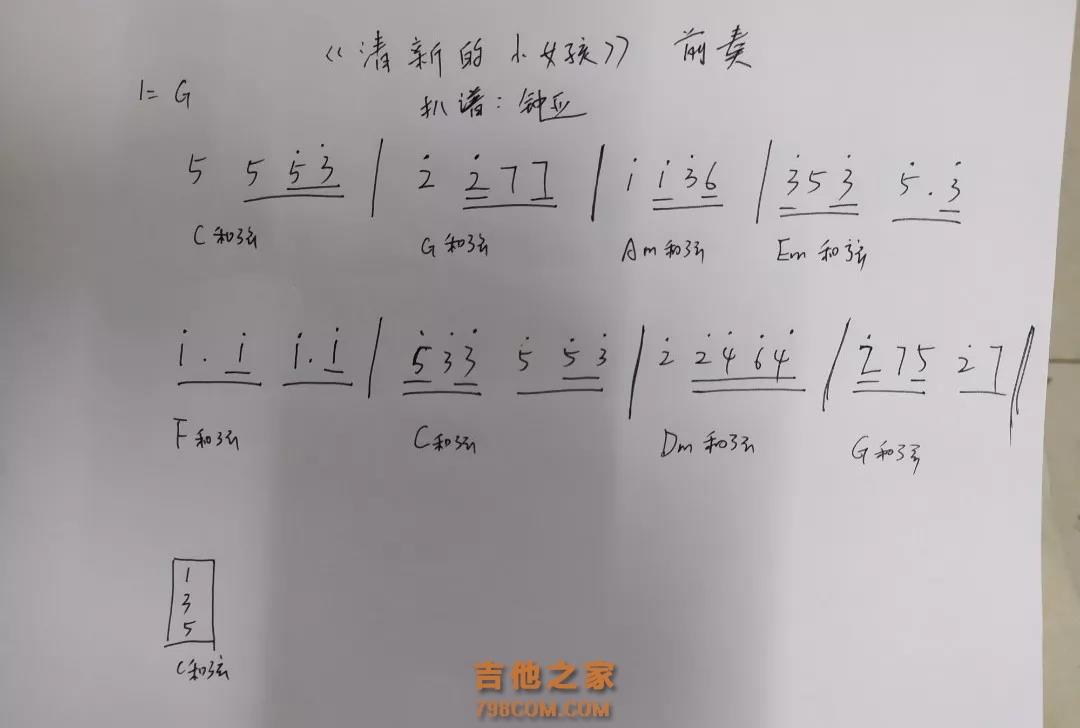 《清新的小女孩》 前奏
1= G
扒谱:钟应
5 5 5̇ 3̇ | 2̇ 2̇ 7 7 | 1̇ 1̇ 3̇ 6 | 3̇ 5 3̇ 5̇ . 3̇
C和弦 G和弦 Am和弦 Em和弦
1̇ . 1̇ 1̇ . 1̇ | 5̇ 3̇ 3̇ 5̇ 5̇ 3̇ | 2̇ 2̇ 4̇ 6̇ 4̇ | 2̇ 7 5 2̇ 7 ‖
F和弦 C和弦 Dm和弦 G和弦
1
3
5
C和弦
吉他之家
798COM.COM